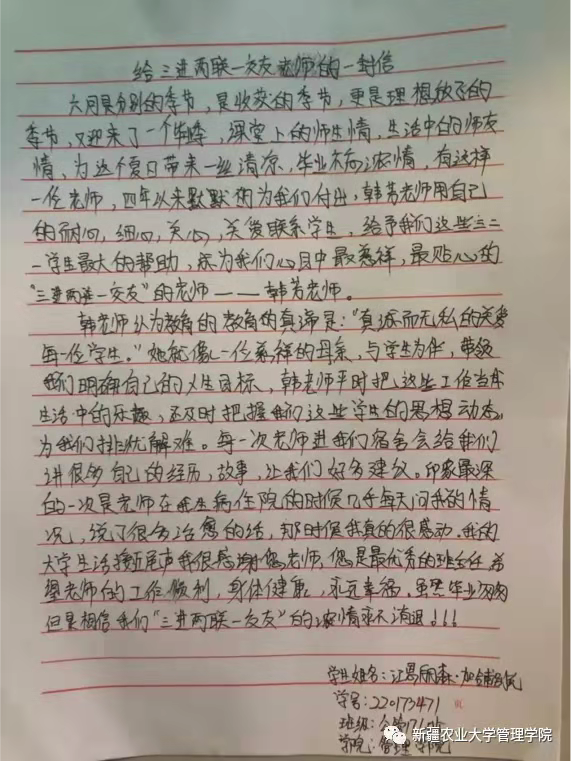 给三进两联一交友老师的一封信
六月是分别的季节,是收获的季节,更是理想放飞的
季节,又迎来了一个毕业季,课堂上的师生情,生活中的师友
情,为这个夏日带来一丝清凉,毕业不忘浓情,有这样
一位老师,四年以来默默为我们付出,韩芳老师用自己
的耐心,细心,关心,关爱联系学生,给予我们这些三二
一学生最大的帮助,成为我们心目中最慈祥,最贴心的
“三进两联一交友”的老师——韩芳老师。
韩老师认为教育的教育的真谛是:“真诚而无私的关爱
每一位学生。”她就像一位慈祥的母亲,与学生为伴,带领
我们明确自己的人生目标,韩老师平时把这些工作当成
生活中的乐趣,还及时把握我们这些学生的思想动态,
为我们排忧解难。每一次老师进我们宿舍会给我们
讲很多自己的经历,故事,让我们好多建议。印象最深
的一次是老师在我生病住院的时候几乎每天问我的情
况,说了很多治愈的话,那时候我真的很感动。我的
大学生活接近尾声我很感谢您老师,您是最优秀的班主任 希
望老师的工作顺利,身体健康,永远幸福。虽然毕业匆匆
但是相信我们“三进两联一交友”的浓情永不消退!!!
学生姓名:江恩
学号:220173471
班级:
学院:管理学院
新疆农业大学管理学院